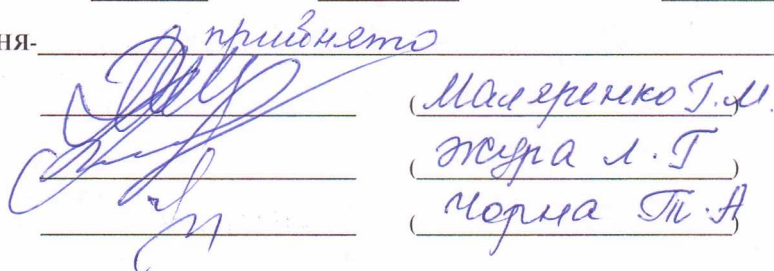 ня- прийнято
(Маляренко Т.М.)
(Жура Л.Г)
(Чорна Т.А)